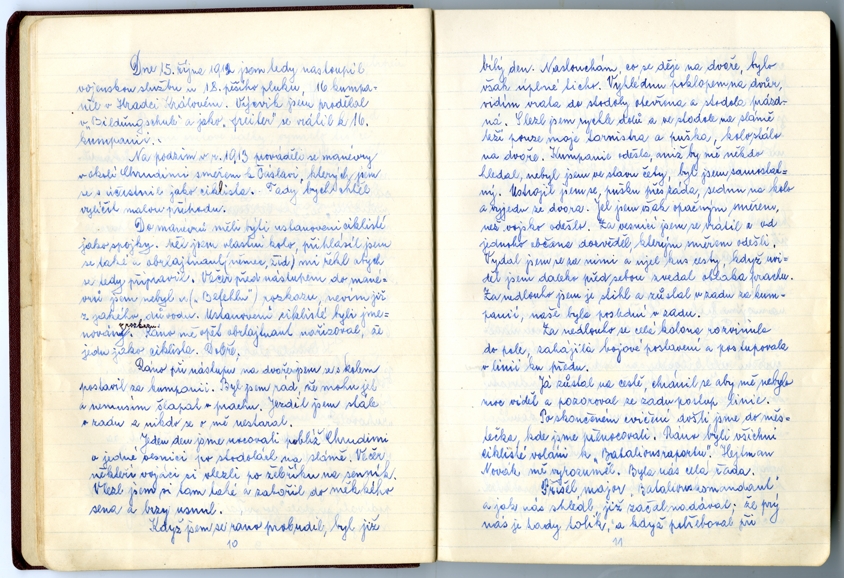 Dne 15. října 1912 jsem tedy nastoupil
vojenskou službu u 18. pěšího pluku, 16 kumpa-
nie v Hradci Královém. Výcvik jsem prodělal
v "Bildungschule" a jako "freiter" se vrátil k 16.
kumpanii.
Na podzim v r. 1913 prováděli se manévry
v okolí Chrudimi směrem k Čáslavi, kterých jsem
se súčastnil jako ciklista. Tady bych chtěl
vylíčit malou příhodu.
Do manévrů měli býti ustanoveni ciklisté
jako spojky. Měl jsem vlastní kolo, přihlásil jsem
se také a obrlajtnant (němec, žid) mi řekl abych
se tedy připravil. Večer před nástupem do mané-
vrů jsem nebyl u ("Befelhu") rozkazu, nevím již
z jakého důvodu. Ustanovení ciklisté byli jme-
nováni. Ráno mě opět obrlajtnant nařizoval, že
jedu jako ciklista. Dobře.
Ráno při nástupu na dvoře jsem se s kolem
postavil za kumpanii. Byl jsem rád, že mohu jet
a nemusím šlapat v prachu. Jezdil jsem stále
v zadu a nikdo se o mě nestaral.
Jeden den jsme nocovali poblíž Chrudimi
v jedné vesnici po stodolách na slámě. Večer
někteří vojáci si vlezli po žebříku na senník.
Vlezl jsem si tam také a zabořil do měkkého
sena a brzy usnul.
Když jsem se ráno probudil, byl již
10
bílý den. Naslouchám, co se děje na dvoře, bylo
však úplné ticho. Vyhlédnu poklopem na dvůr,
vidím vrata do stodoly otevřena a stodola prázd-
ná. Slezl jsem rychle dolů a ve stodole na slámě
leží pouze moje tornistra a puška, kolo stálo
na dvoře. Kumpanie odešla, aniž by mě někdo
hledal, nebyl jsem ve stavu čety, byl jsem samostat-
ný. Ustrojil jsem se, pušku přes záda, sednu na kolo
a vyjedu ze dvora. Jel jsem však opačným směrem,
než vojsko odešlo. Za vesnicí jsem se vrátil a od
jednoho občana dozvěděl, kterým směrem odešli.
Vydal jsem se za nimi a ujel kus cesty, když uvi-
děl jsem daleko před sebou zvedat oblaka prachu.
Za nedlouho jsem je stihl a zůstal v zadu za kum-
panií, naše byla poslední v zadu.
Za nedlouho se celá kolona rozvinula
do pole, zahájila bojové postavení a postupovala
v linii ku předu.
Já zůstal na cestě, chránil se aby mě nebylo
moc vidět a pozoroval ze zadu postup linie.
Po skončeném cvičení došli jsme do měs-
tečka, kde jsme přenocovali. Ráno byli všichni
ciklisté voláni k "Batalionsraportu". Hejtman
Novák mě vyrozuměl. Byla nás celá řada.
Přišel major, "Batalionskomandant"
a jak nás shlédl, již začal nadávat: že prý
nás je tady tolik, a když potřeboval při
11